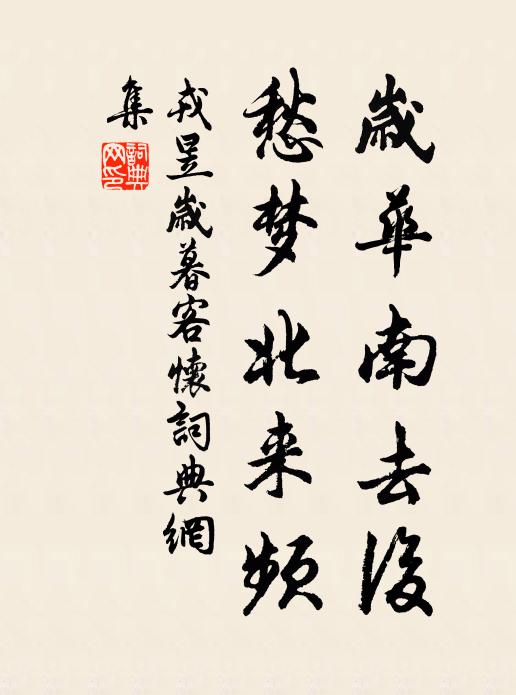 歲華南去後
愁梦北来頻
戎昱歲暮客懷詞典網
集
詞典
网印